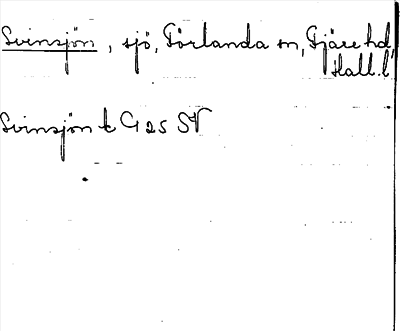 Svinsjön, sjö, Förlanda sn, Fjäre hd,
Hall. l.
Svinsjön k G 25 SV